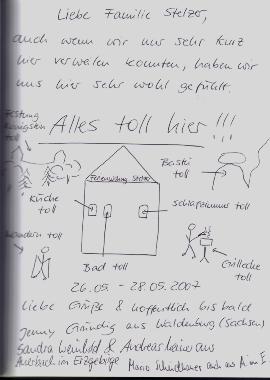 Liebe Familie Stelzer,
auch wenn wir nur sehr kurz
hier verweilen konnten, haben wir
uns hier sehr wohl gefühlt.
Alles toll hier!!!
Festung
Königstein
toll
Bastei
toll
Ferienwohnung Stelzer
Küche
toll
Schlafzimmer toll
Wandern toll
Bad toll
Grillecke
toll
26.05. - 28.05.2007
Liebe Grüße & hoffentlich bis bald
Jenny Gründig aus Waldenburg (Sachsen)
Sandra & Andreas aus
Auerbach im Erzgebirge
Mario auch aus A. im E.